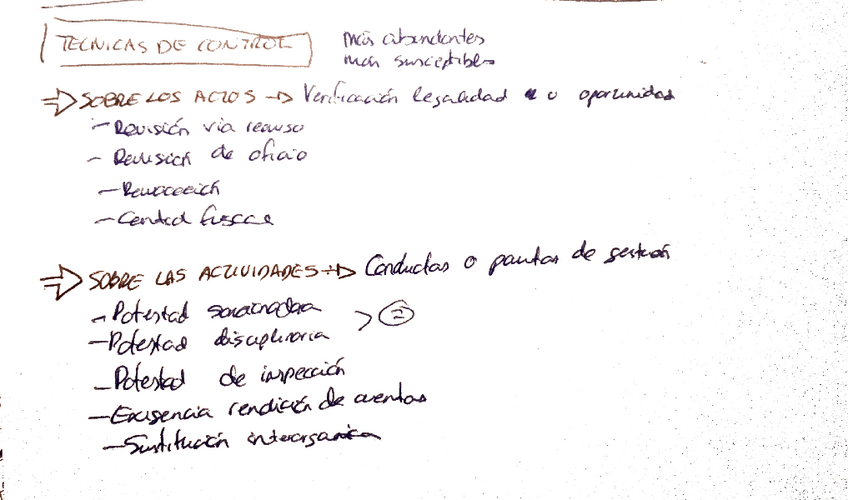 TECNICAS DE CONTROL
más abundantes
más susceptibles
⇒ SOBRE LOS ACTOS → Verificación legalidad o oportunidad
- Revisión via recurso
- Revisión de oficio
- Revocación
- Control fiscal
⇒ SOBRE LAS ACTIVIDADES → Conductas o pautas de gestión
- Potestad sancionadora
- Potestad disciplinaria
> 2
- Potestad de inspección
- Exigencia rendición de cuentas
- Sustitución interorganica